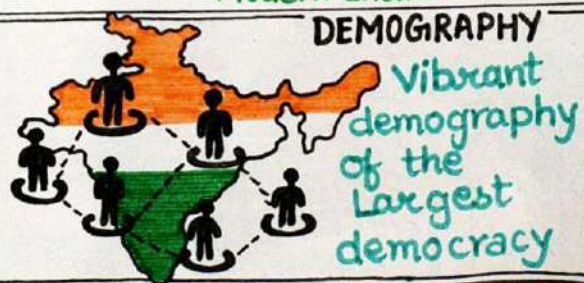 DEMOGRAPHY
Vibrant
demography
of the
Largest
democracy